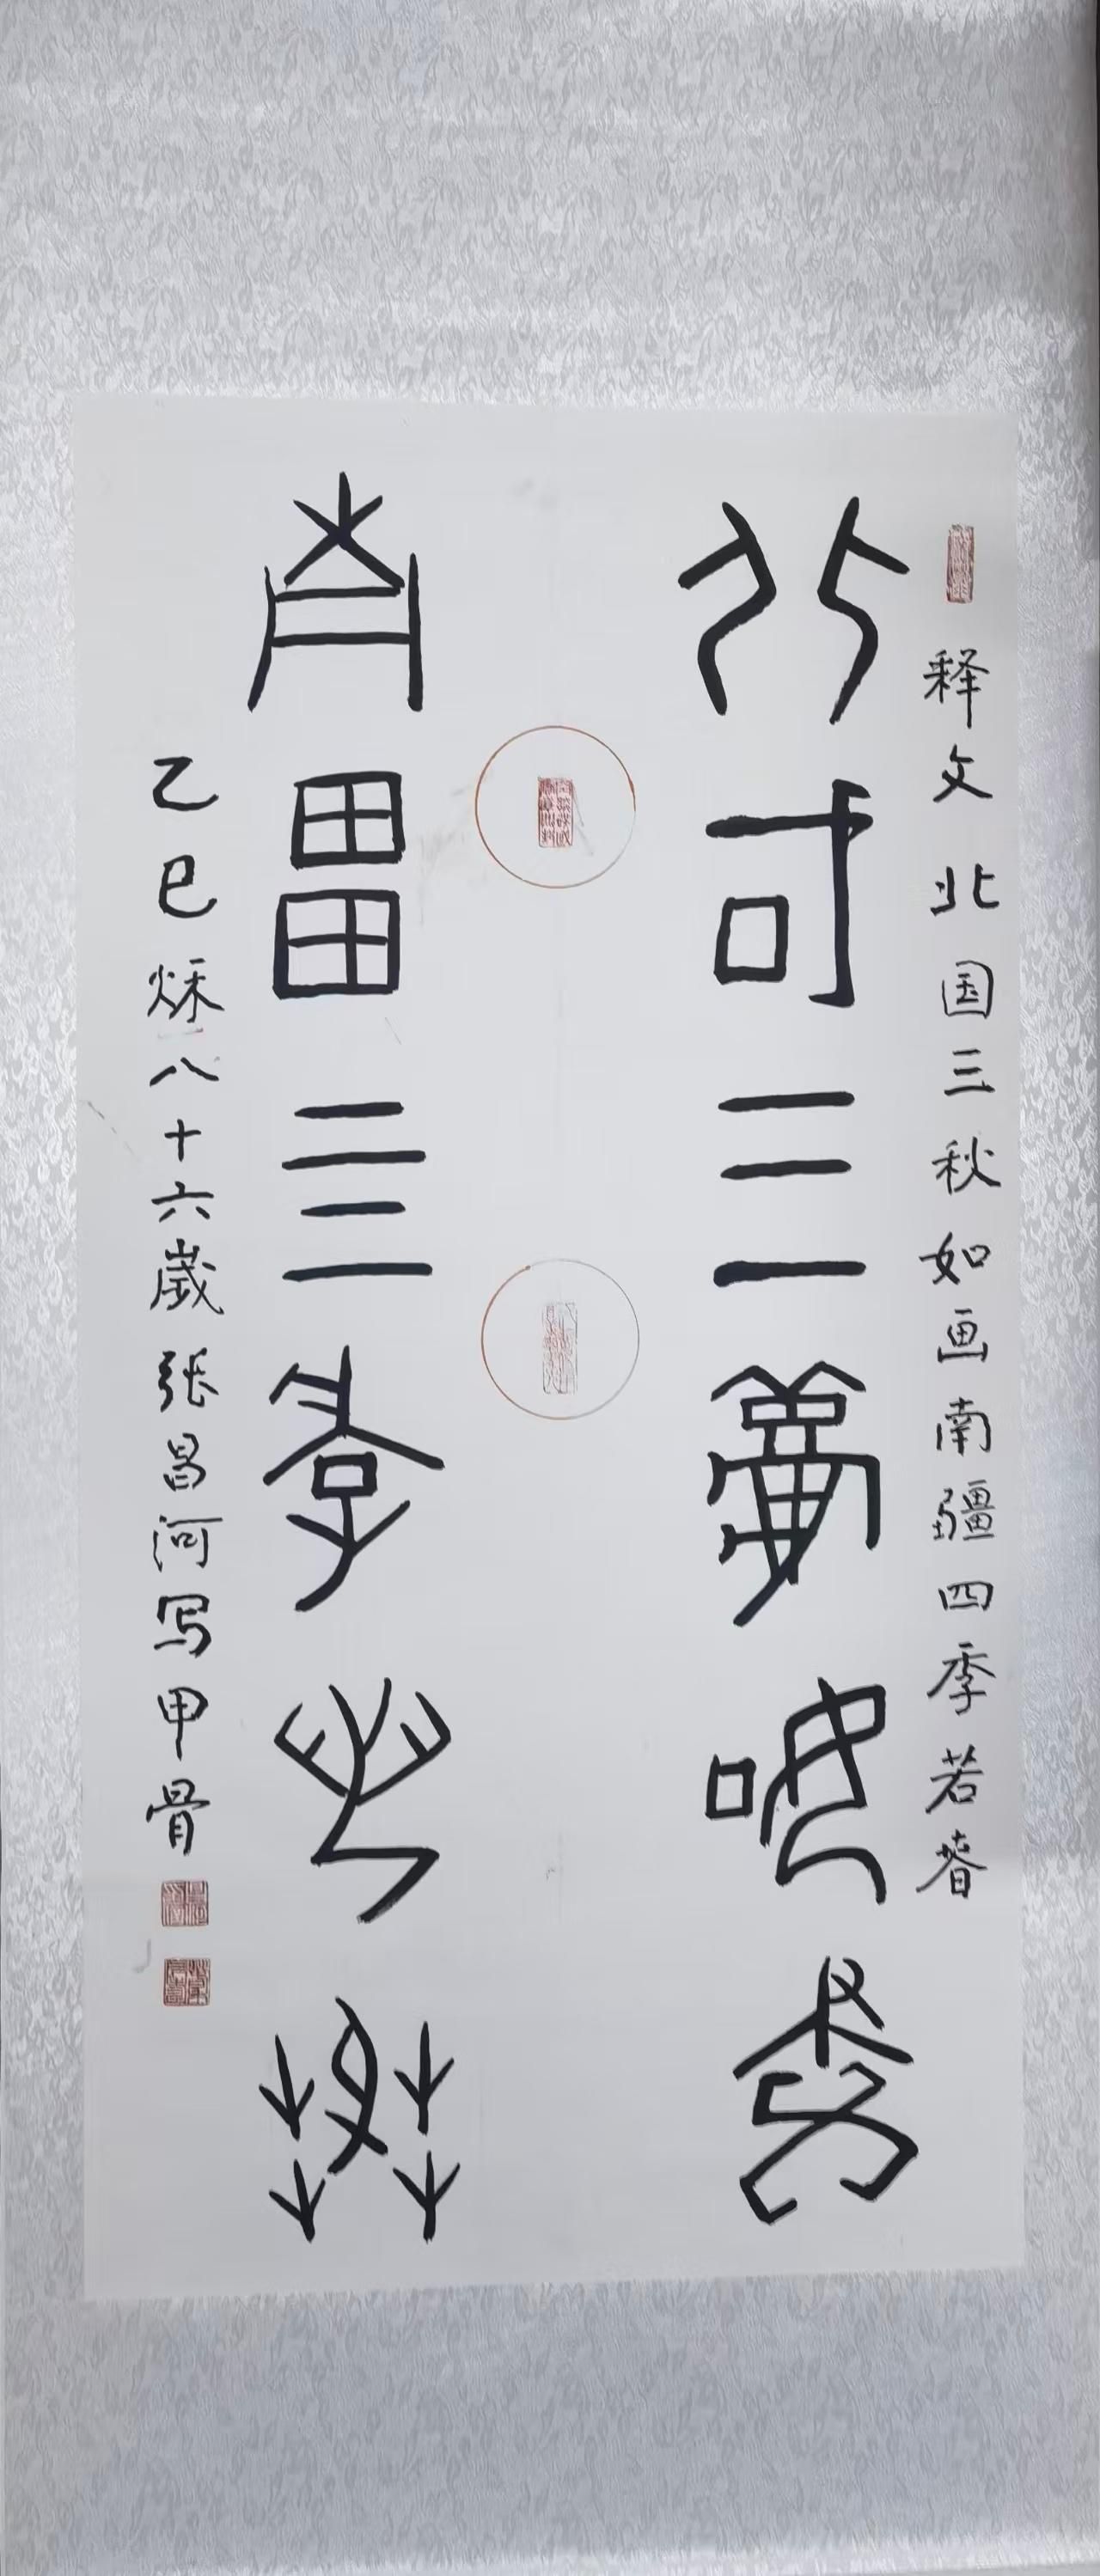 释文 北国三秋如画南疆四季若春
北国三秋如画
南疆四季若春
乙巳秌八十六歲张昌河写甲骨